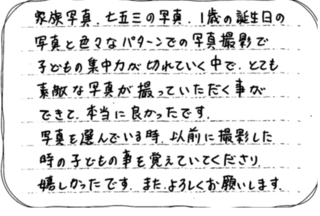 家族写真、七五三の写真、1歳の誕生日の
写真と色々なパターンでの写真撮影で
子どもの集中力が切れていく中で、とても
素敵な写真が撮っていただく事が
できて、本当に良かったです。
写真を選んでいる時、以前に撮影した
時の子どもの事を覚えていてくださり
嬉しかったです。また、よろしくお願いします。